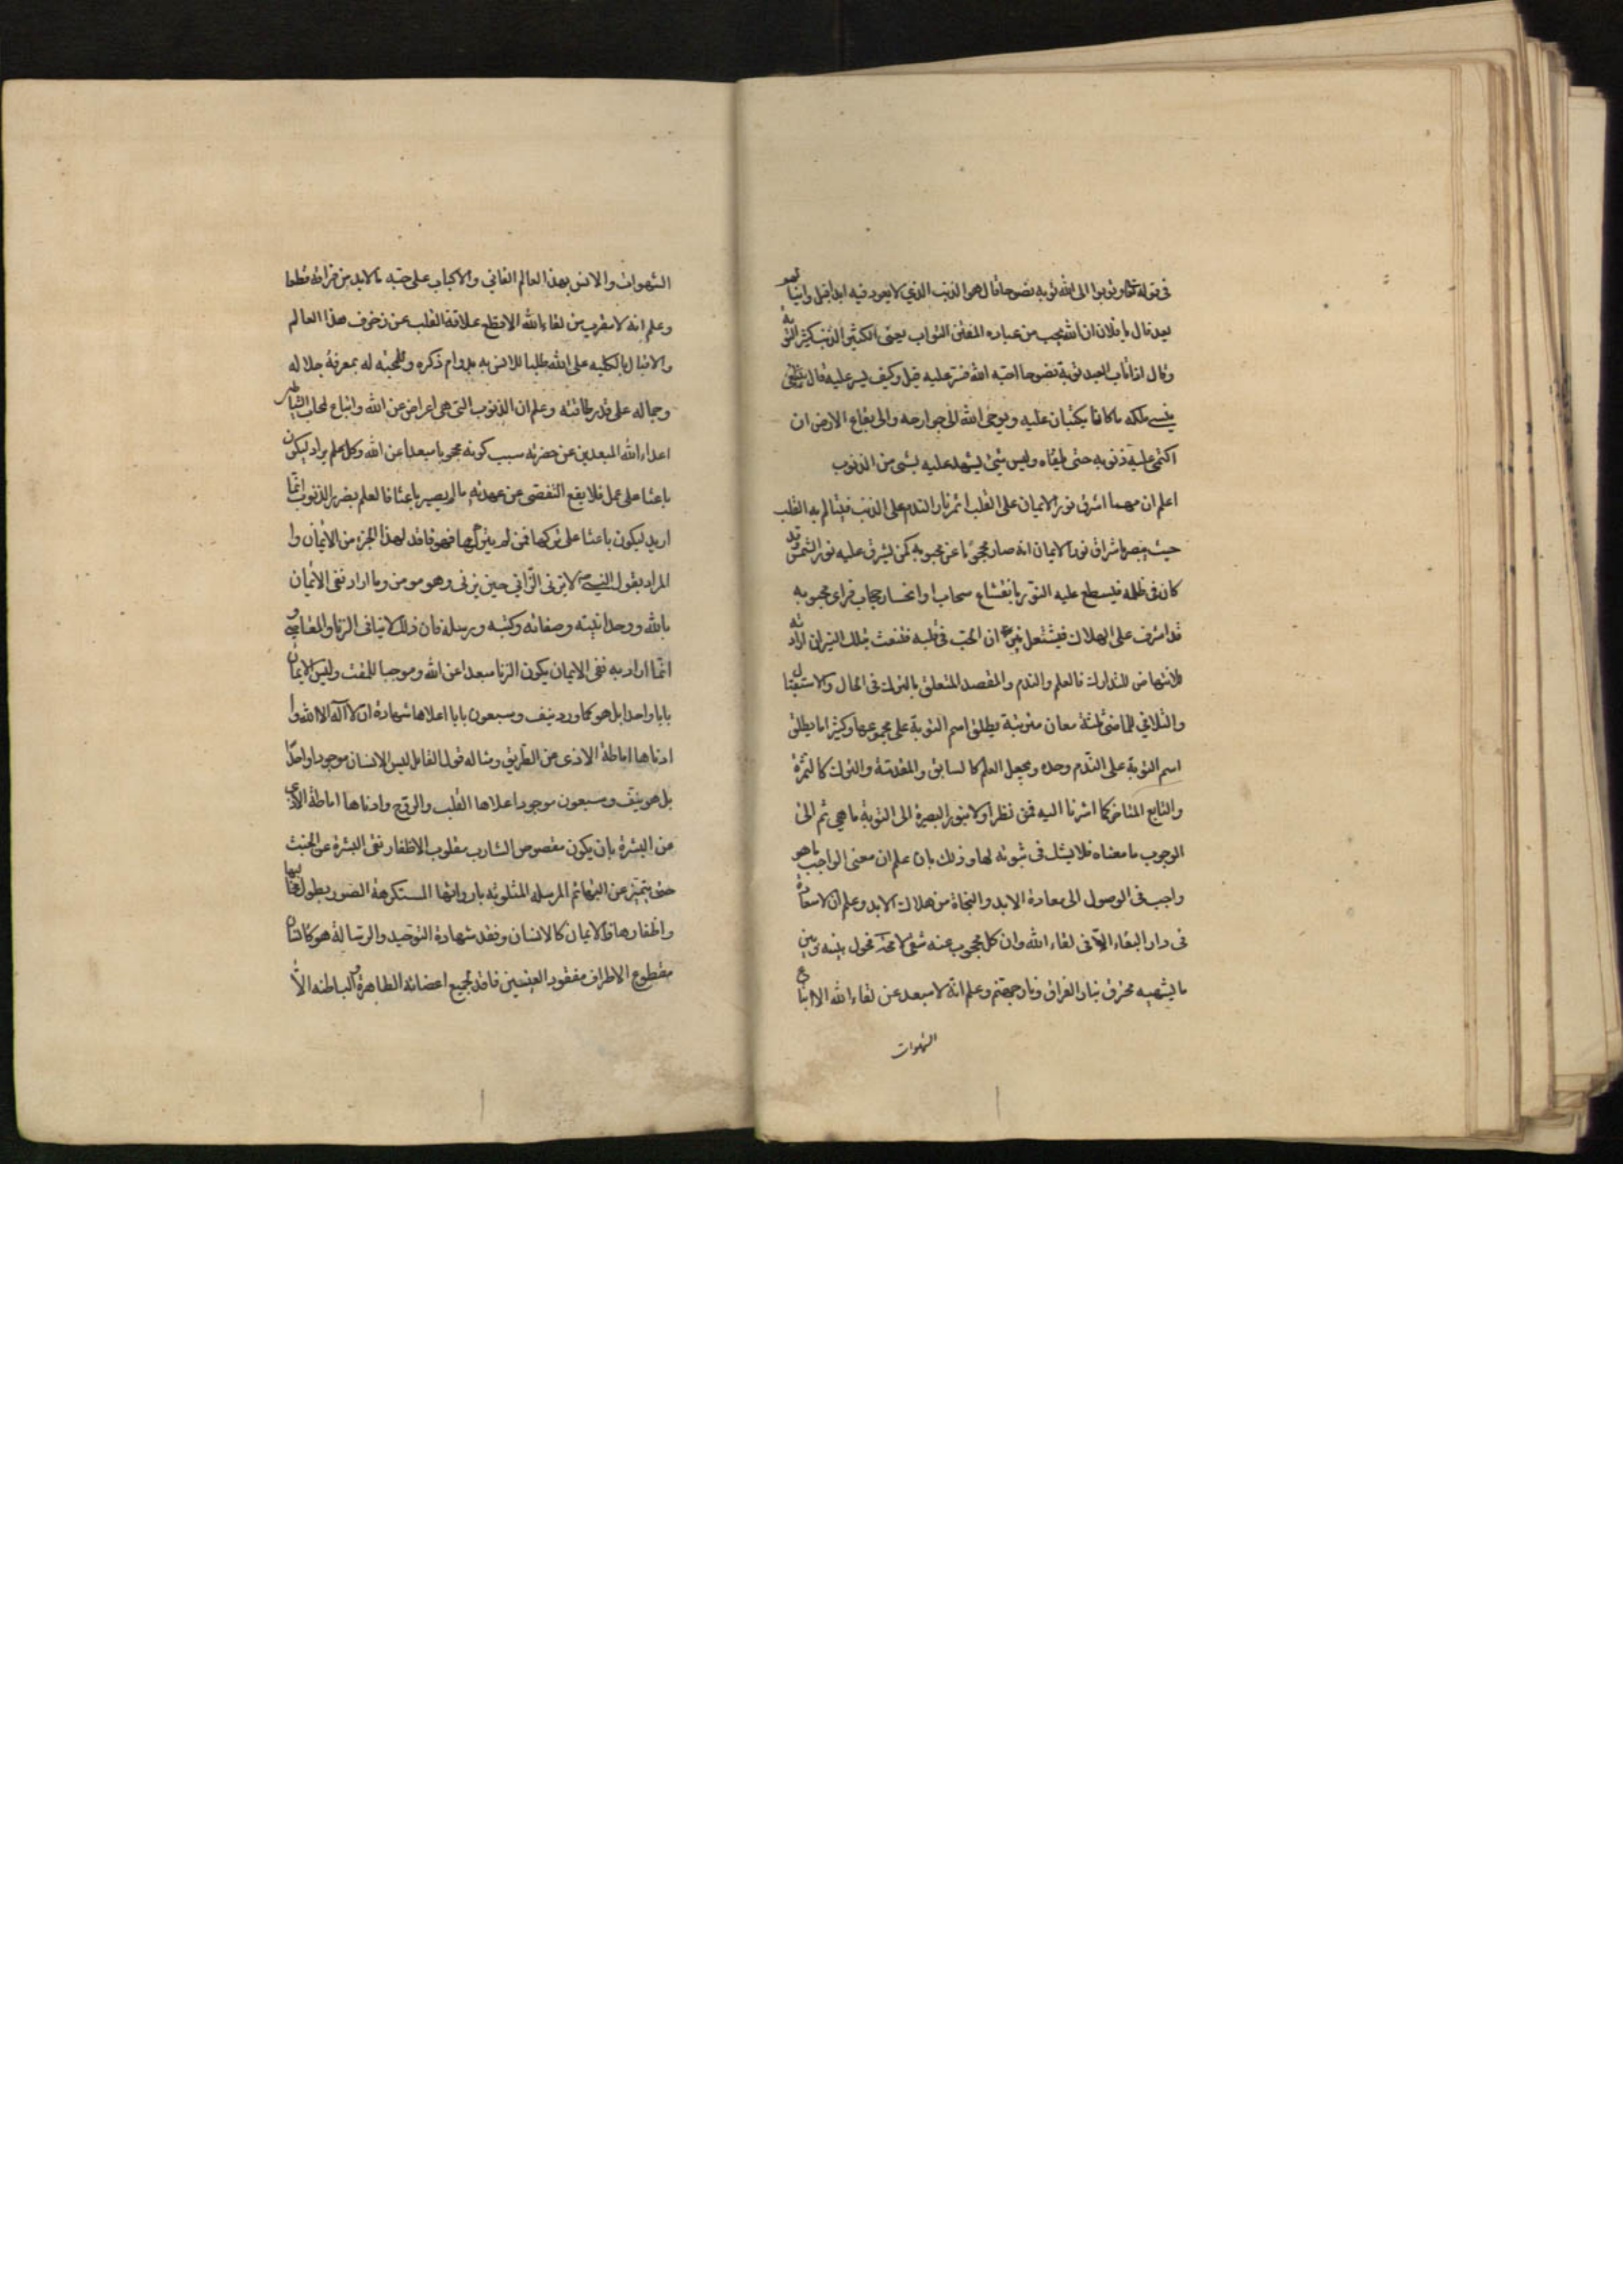 فى قوله تعالى وتوبوا الى الله توبة نصوحا قال هو الذنب الذي لا يعود فيه ابدا قيل واينا لم يعد
يعد قال يا فلان ان الله يحب من عباده المفتن التواب يعنى الكثير الذنب كثير التوبة
وقال اذا تاب العبد توبة نصوحا احبه الله فستر عليه قيل وكيف يستر عليه قال
ينسى ملكيه ما كانا يكتبان عليه ويوحى الله الى جوارحه والى بقاع الارض ان
اكتمى عليه ذنوبه حتى يلقاه وليس شئ يشهد عليه بشئ من الذنوب
اعلم ان مهما اشرق نور الايمان على القلب اثمر نار الندم على الذنب فيتالم به القلب
حيث يبصر باشراق نور الايمان انه صار محجوبا عن محبوبه كمن يشرق عليه نور الشمس وقد
كان فى ظلمة فيسطع عليه النور بانقشاع سحاب او انحسار حجاب فراى محبوبه
قد اشرف على الهلاك فيشتعل نيران الحب فى قلبه فتنبعث بتلك النيران ارادته
للانتهاض للتدارك فالعلم والندم والقصد المتعلق بالترك فى الحال والاستقبال
والتلافى للماضى ثلثة معان مترتبة يطلق اسم التوبة على مجموعها وكثيرا ما يطلق
اسم التوبة على الندم وحده ويجعل العلم كالسابق والمقدمة والترك كالثمرة
والتابع المتاخر كما اشرنا اليه فمن نظر اولا بنور البصيرة الى التوبة ما هي ثم الى
الوجوب ما معناه فلا يشك فى ثبوته لها وذلك بان علم ان معنى الواجب ما هو
واجب فى الوصول الى سعادة الابد والنجاة من هلاك الابد وعلم ان لا سعادة
فى دار البقاء الا فى لقاء الله وان كل محجوب عنه شقى لا محالة محول بينه وبين
ما يشتهيه محترق بنار الفراق ونار جهنم وعلم انه لا مبعد عن لقاء الله الا اتباع
الشهوات
الشهوات والانس بهذا العالم الفانى والاكباب على حبه ما لابد من فراقه قطعا
وعلم انه لا مقرب من لقاء الله الا قطع علاقة القلب عن زخرف هذا العالم
والاقبال بالكلية على الله طلبا للانس به بدوام ذكره وللمحبة له بمعرفة جلاله
وجماله على قدر طاقته وعلم ان الذنوب التى هى اعراض عن الله واتباع لمحاب الشياطين
اعداء الله المبعدين عن حضرته سبب كونه محجوبا مبعدا عن الله وكل علم يراد ليكون
باعثا على عمل فلا يقع التفصى عن عهدته ما لم يصير باعثا فالعلم بضرر الذنوب انما
اريد ليكون باعثا على تركها فمن لم يتركها فهو فاقد لهذا الجزء من الايمان وا
المراد بقول النبى لا يزنى الزانى حين يزنى وهو مومن وما اراد نفى الايمان
بالله ووحدانيته وصفاته وكتبه ورسله فان ذلك لا ينافى الزنا والمعاصى و
انما اراد به نفى الايمان بكون الزنا مبعدا عن الله وموجبا للمقت وليس الايمان
بابا واحدا بل هو كما ورد نيف وسبعون بابا اعلاها شهادة ان لا اله الا الله وا
ادناها اماطة الاذى عن الطريق ومثاله قول القايل ليس الانسان موجودا واحدا
بل هو نيف وسبعون موجودا اعلاها القلب والروح وادناها اماطة الاذى
عن البشرة بان يكون مقصوص الشارب مقلوم الاظفار نقى البشرة عن الخبث
حتى يتميز عن البهائم المرسلة المتلوثة باروائها المستكرهة الصور بطول مخالبها
واظفارها فالايمان كالانسان وفقد شهادة التوحيد والرسالة هو كانسان
مقطوع الاطراف مفقود العينين فاقد لجميع اعضائه الظاهرة والباطنة الا